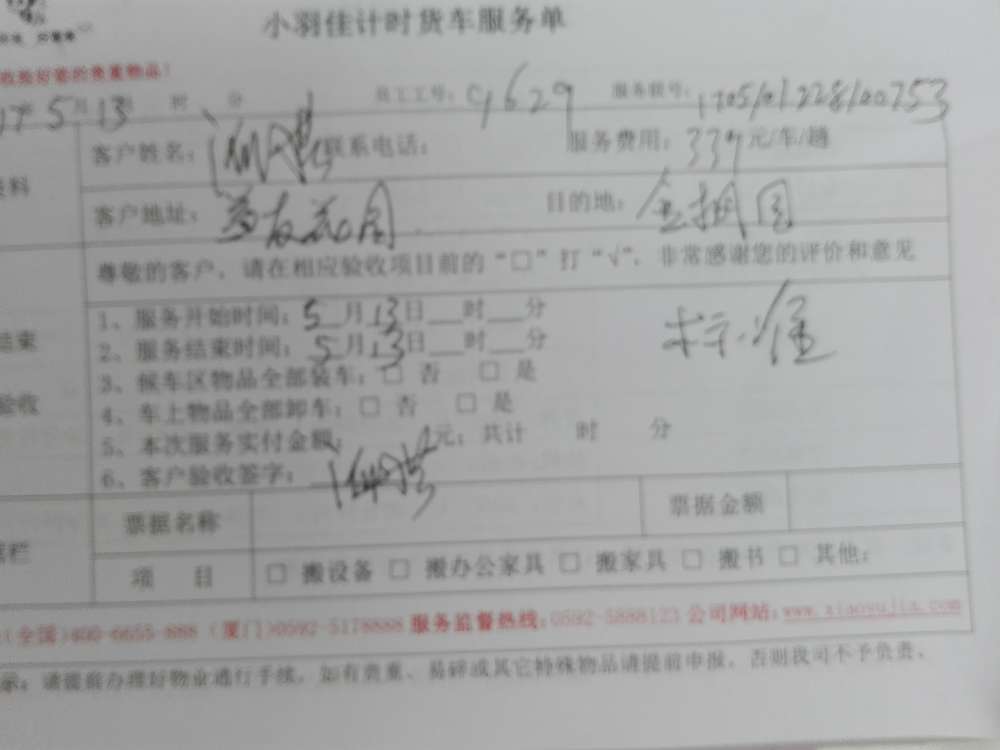 小羽佳计时货车服务单
收拾好您的贵重物品！
17年 5月 13日 时 分 员工工号：01629 服务联号：
客户姓名： 联系电话： 服务费用：339元/车/趟
客户地址：益友花园 目的地：
尊敬的客户，请在相应验收项目前的“□”打“√”，非常感谢您的评价和意见
1、服务开始时间：5月13日__时__分
2、服务结束时间：5月13日__时__分
标准
3、候车区物品全部装车：□ 否 □ 是
4、车上物品全部卸车：□ 否 □ 是
5、本次服务实付金额： 元；共计 时 分
6、客户验收签字：
结束
验收
票据名称 票据金额
项 目 □ 搬设备 □ 搬办公家具 □ 搬家具 □ 搬书 □ 其他：
(全国)400-6655-888 (厦门)0592-5178888 服务监督热线：0592-5888123 公司网站：www.xiaoyujia.com
示：请提前办理好物业通行手续，如有贵重、易碎或其它特殊物品请提前申报，否则我司不予负责。